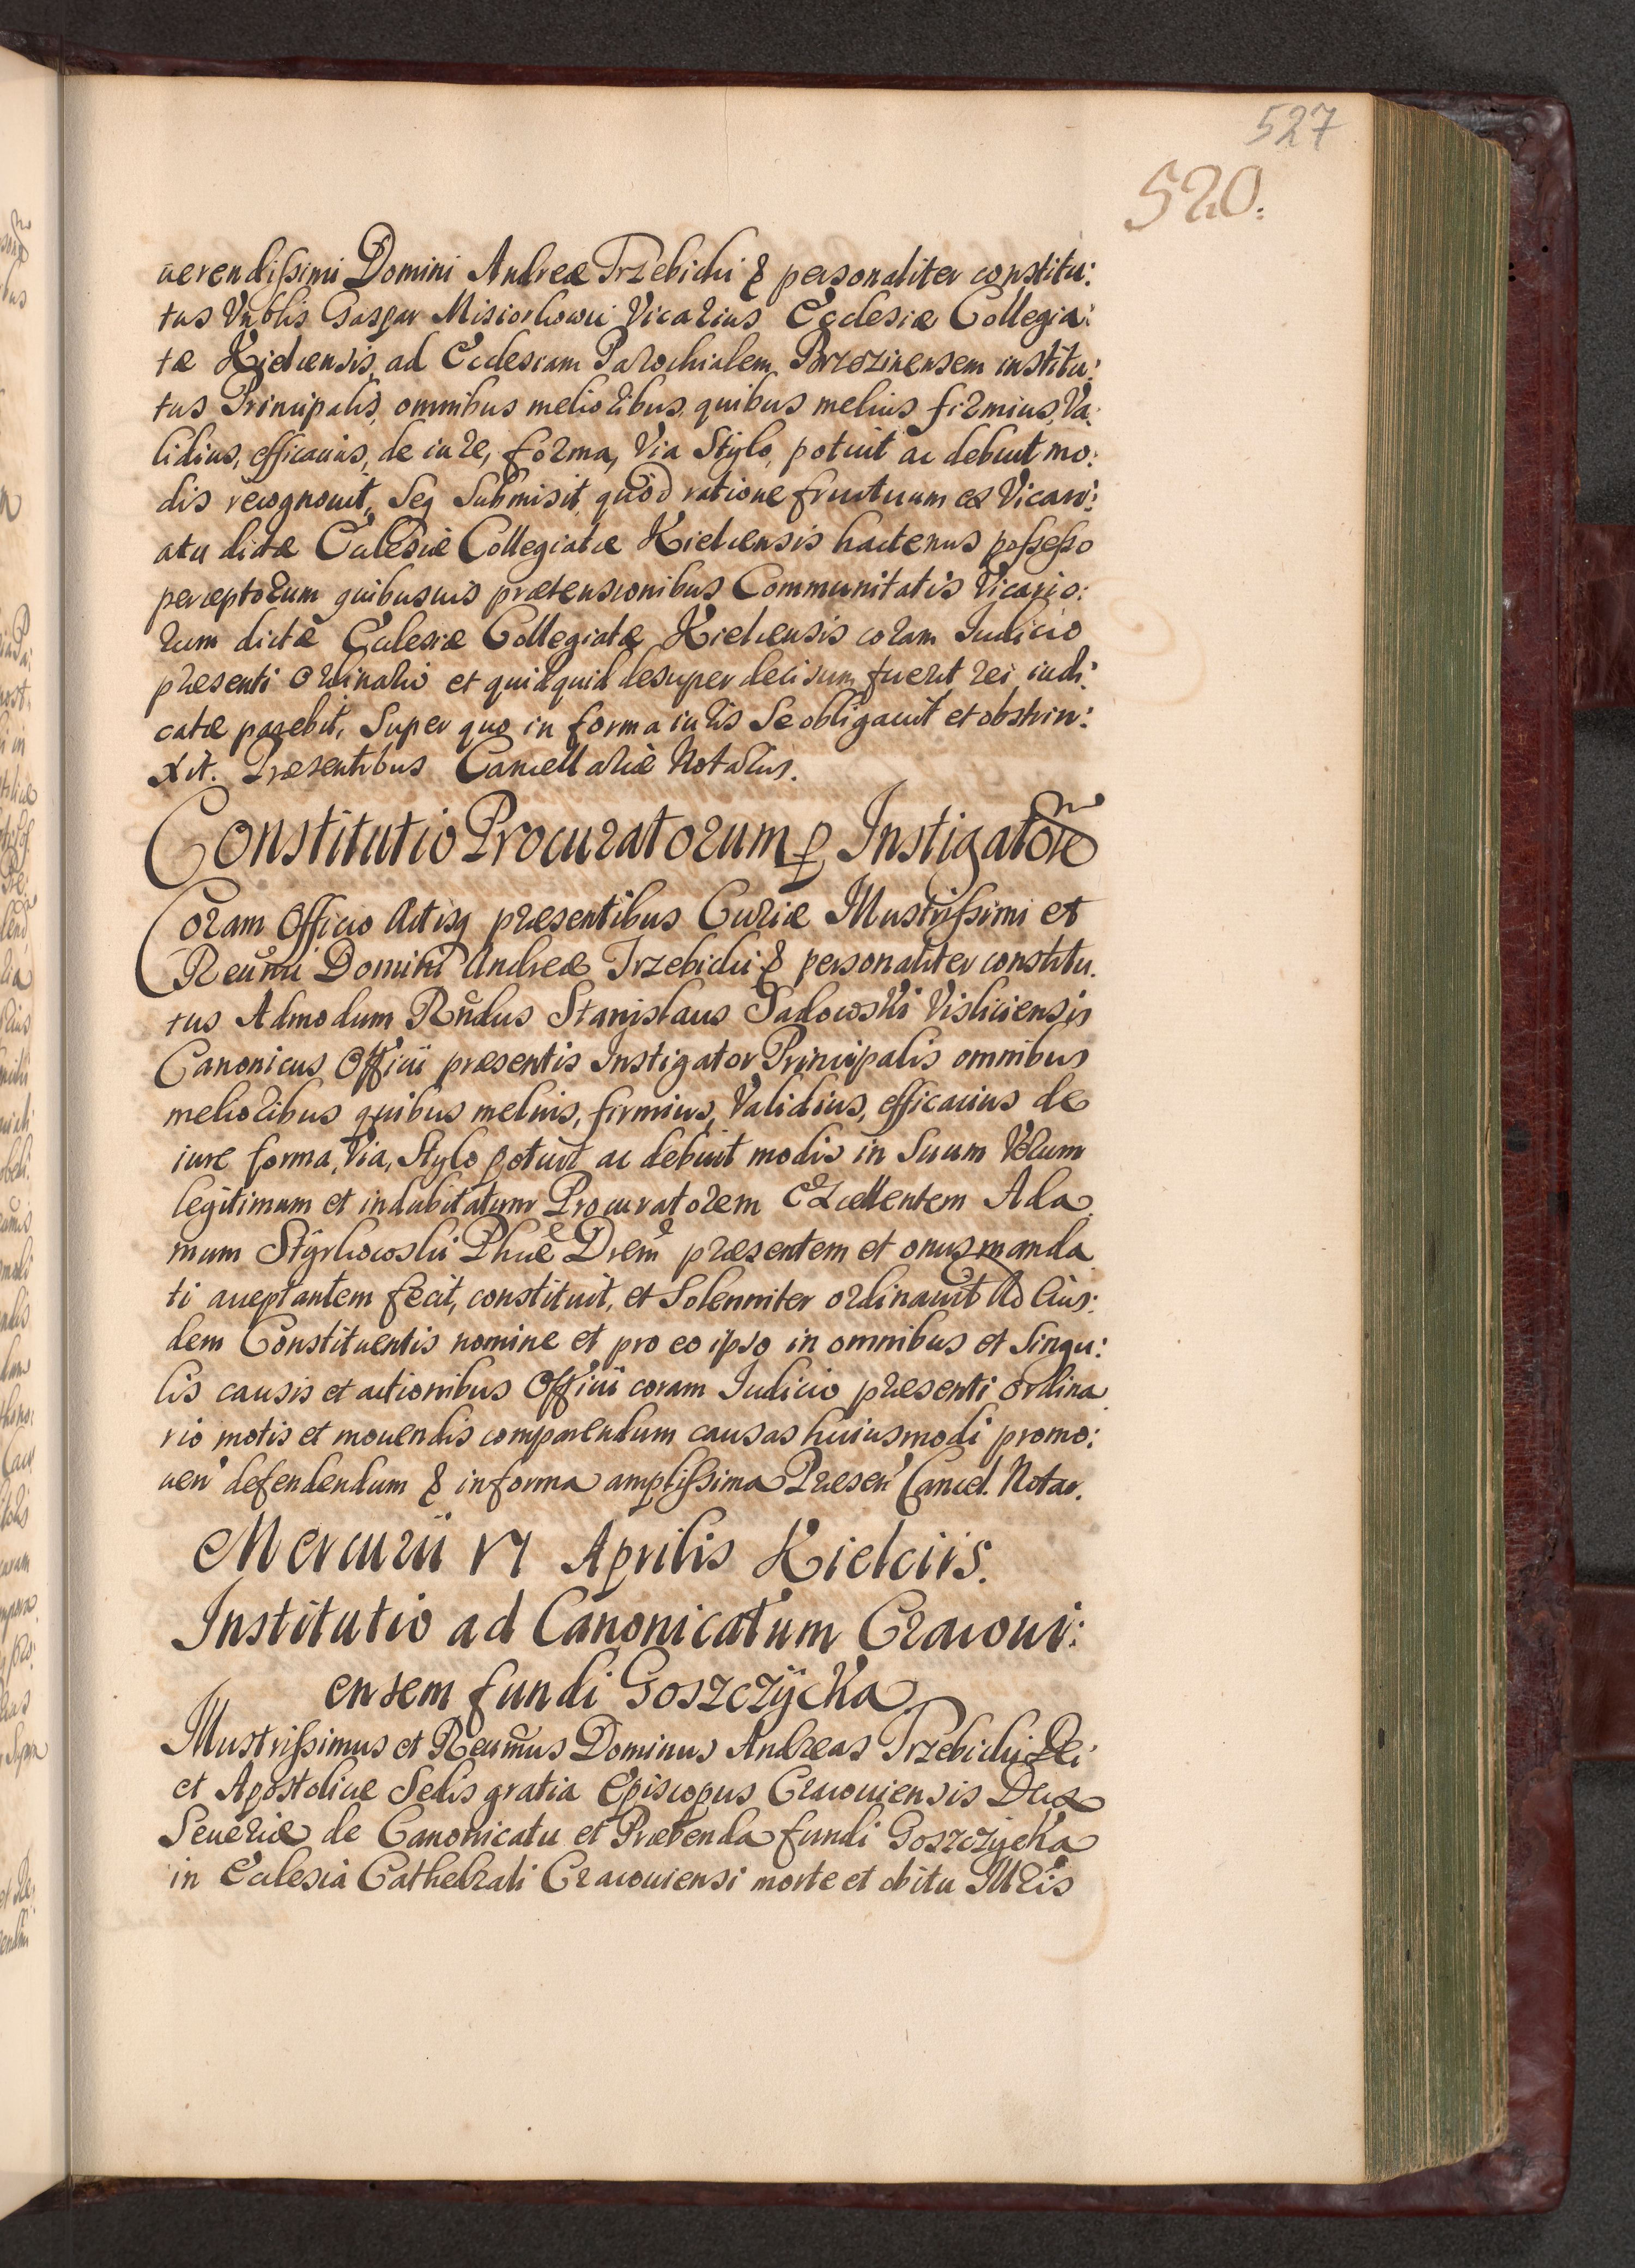 527
520.
uerendissimi Domini Andreæ Trzebicki & personaliter constitu:
tus Vnblis Gaspar Misiorkowic Vicarius Ecclesiæ Collegia:
tæ Kielcensis, ad Ecclesiam Parochialem Brzezinensem institu:
tus Principalis, omnibus melioribus quibus melius firmius, Va:
lidius, efficacius, de iure, forma, Via Stylo, potuit ac debuit mo:
dis recognouit, Seq Submisit, quod ratione fructuum ex Vicari:
atu dictæ Ecclesiæ Collegiatæ Kielcensis hactenus possesso
perceptorum quibusuis prætensionibus Communitatis Vicario:
rum dictæ Ecclesiæ Collegiatæ Kielcensis coram Iudicio
præsenti Ordinario et quidquid desuper decisum fuerit rei iudi:
catæ parebit, Super quo in forma iuris Se obligauit et obstrin:
xit. Præsentibus Cancellariæ Notariis.
Constitutio Procuratorum p Instigatore
Coram Officio Actisq præsentibus Curiæ Illustrissimi et
Reumi Domini Andreæ Trzebicki & personaliter constitu.
tus Admodum Rndus Stanislaus Sadowski Visliciensis
Canonicus Officii præsentis Instigator Principalis omnibus
melioribus quibus melius, firmius, Validius, efficacius de
iure forma, Via, Stylo potuit ac debuit modis in Suum Verum
legitimum et indubitatum Procuratorem Excellentem Ada
mum Styrkowski Phiæ Drem præsentem et onus manda
ti acceptantem fecit, constituit, et Solenniter ordinauit Ad Eius:
dem Constituentis nomine et pro eo ipso in omnibus et Singu:
lis causis et actionibus Officii coram Iudicio præsenti ordina
rio motis et mouendis comparendum causas huiusmodi promo:
uen defendendum & in forma amplissima Præsen Cancel. Notar.
Mercurii 17 Aprilis Kielciis.
Institutio ad Canonicatum Cracoui:
ensem fundi Goszczycka
Illustrissimus et Reumus Dominus Andreas Trzebicki Dei
et Apostolicæ Sedis gratia Episcopus Cracouiensis Dux
Seueriæ de Canonicatu et Præbenda fundi Goszczycka
in Ecclesia Cathedrali Cracouiensi morte et obitu Illris